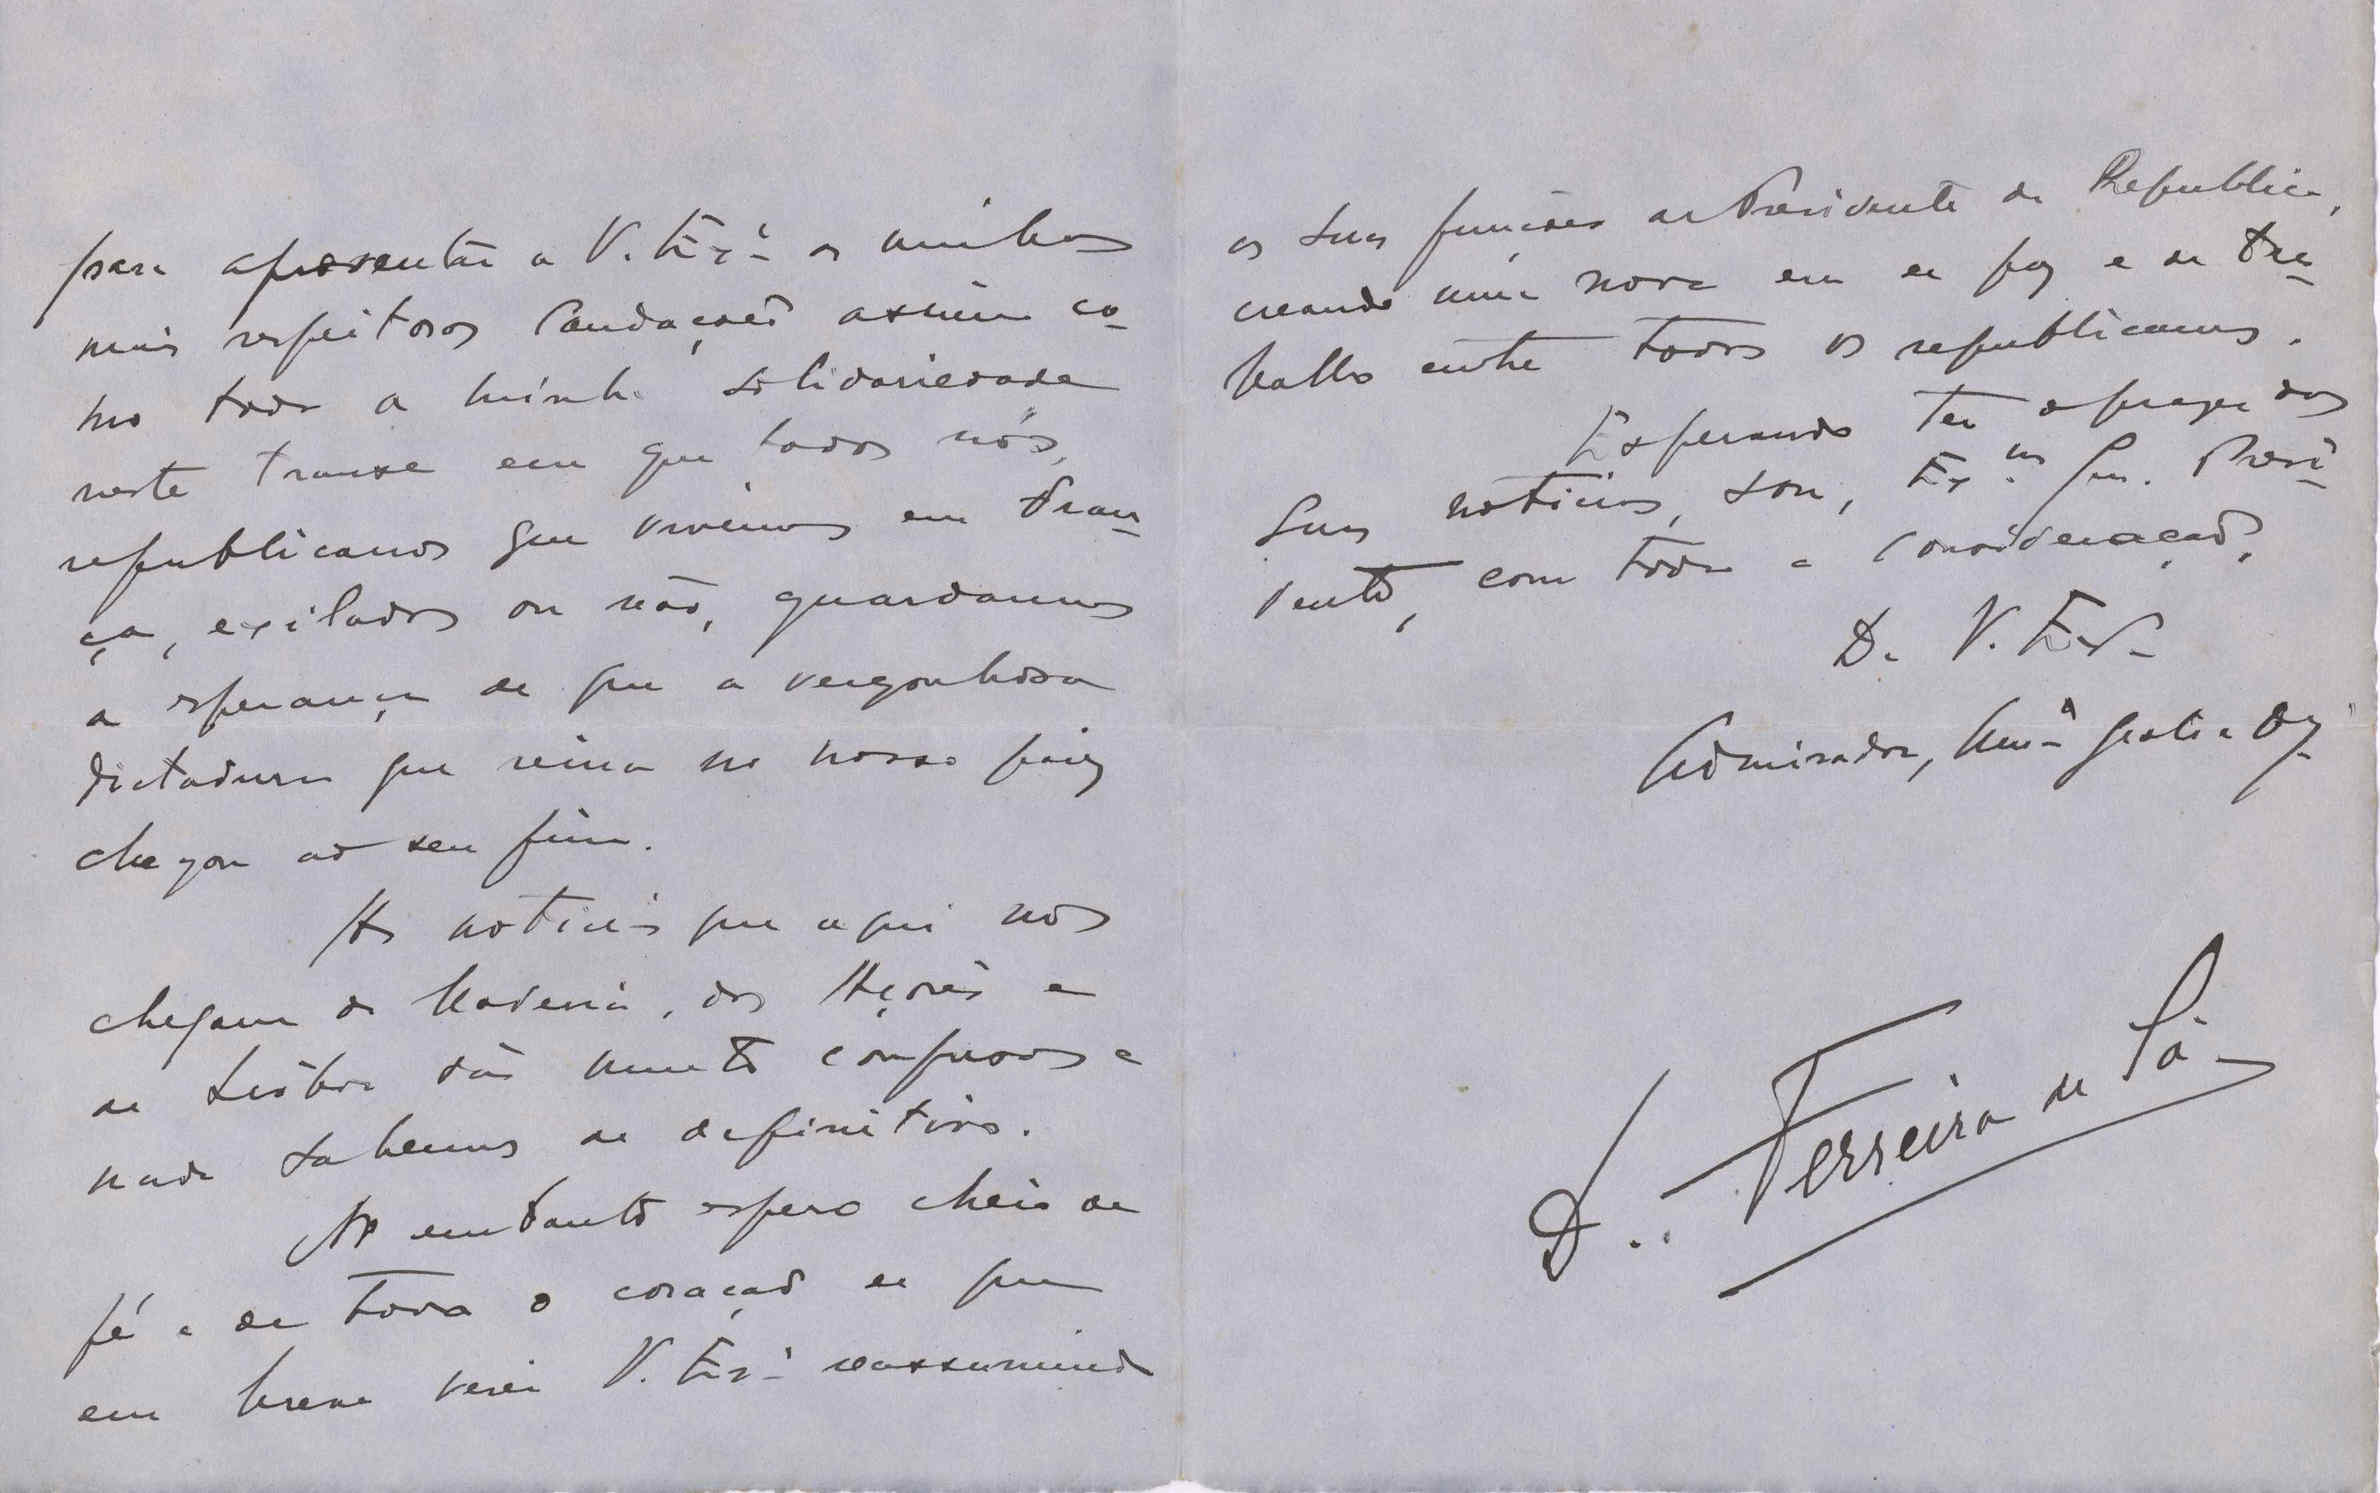 para apresentar a V. Exª as minhas
mais respeitosas saudações assim co-
mo toda a minha solidariedade
neste transe em que todos nós,
republicanos que vivemos em Fran-
ça, exilados ou não, guardamos
a esperança de que a vergonhosa
dictadura que reina no nosso paiz
chegou ao seu fim.
As noticias que aqui nos
chegam da Madeira, dos Açores e
de Lisboa são muito confusas e
nada sabemos de definitivo.
No emtanto espero cheio de
fé e de todo o coração de que
em breve verei V. Exª reassumindo
as suas funções de Presidente da Republica,
creando uma nova era de paz e de tra-
balho entre todos os republicanos.
Esperando ter o prazer das
suas noticias, sou, Exmo Snr. Presi-
dente, com toda a consideração,
De V. Exª
Admirador, Mtº
D. Ferreira de Sá